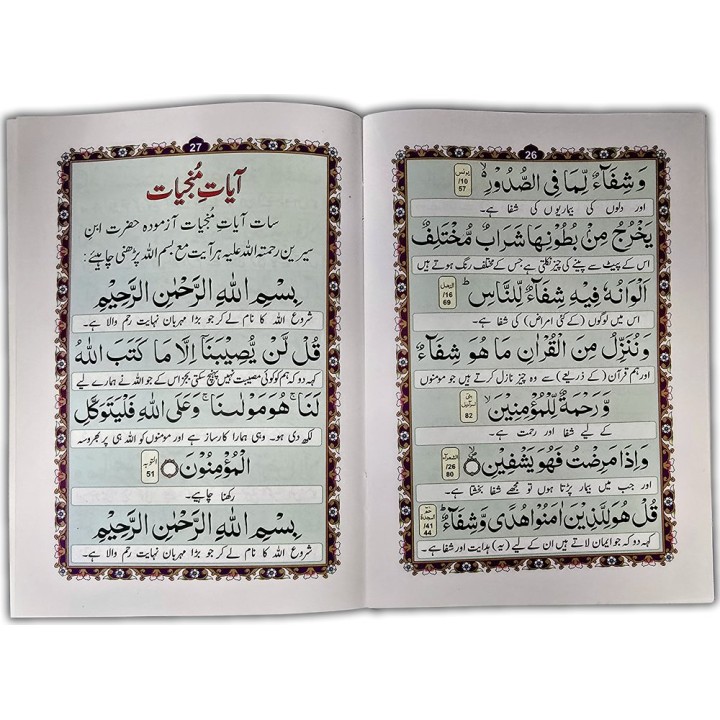 26
وَشِفَآءٌ لِّمَا فِی الصُّدُوْرِ
یونس
10/
57
اور دلوں کی بیماریوں کی شفا ہے۔
یَخْرُجُ مِنْۢ بُطُوْنِهَا شَرَابٌ مُّخْتَلِفٌ
اس کے پیٹ سے پینے کی چیز نکلتی ہے جس کے مختلف رنگ ہوتے ہیں
اَلْوَانُهٗ فِیْهِ شِفَآءٌ لِّلنَّاسِ ؕ
النحل
16/
69
اس میں لوگوں (کے کئی امراض) کی شفا ہے۔
وَنُنَزِّلُ مِنَ الْقُرْاٰنِ مَا هُوَ شِفَآءٌ
اور ہم قرآن (کے ذریعے) سے وہ چیز نازل کرتے ہیں جو مومنوں
وَّرَحْمَةٌ لِّلْمُؤْمِنِیْنَ ۙ
بنی اسرآئیل
82
کے لیے شفا اور رحمت ہے۔
وَاِذَا مَرِضْتُ فَهُوَ یَشْفِیْنِ
الشعرآء
26/
80
اور جب میں بیمار پڑتا ہوں تو مجھے شفا بخشتا ہے۔
قُلْ هُوَ لِلَّذِیْنَ اٰمَنُوْا هُدًی وَّشِفَآءٌ ؕ
حٰم السجدۃ
41/
44
کہہ دو کہ جو ایمان لاتے ہیں ان کے لیے (یہ) ہدایت اور شفا ہے۔
27
آیاتِ مُنجیات
سات آیاتِ مُنجیات آزمودہ حضرت ابنِ
سیرین رحمتہ اللہ علیہ ہر آیت مع بسم اللہ پڑھنی چاہیئے:
بِسْمِ اللهِ الرَّحْمٰنِ الرَّحِیْمِ
شروع اللہ کا نام لے کر جو بڑا مہربان نہایت رحم والا ہے۔
قُلْ لَّنْ یُّصِیْبَنَاۤ اِلَّا مَا کَتَبَ اللهُ
کہہ دو کہ ہم کو کوئی مصیبت نہیں پہنچ سکتی بجز اس کے جو اللہ نے ہمارے لیے
لَنَا ۚ هُوَ مَوْلٰىنَا ۚ وَعَلَی اللهِ فَلْیَتَوَکَّلِ
لکھ دی ہو۔ وہی ہمارا کارساز ہے اور مومنوں کو اللہ ہی پر بھروسہ
الْمُؤْمِنُوْنَ
التوبہ
51
رکھنا چاہیے۔
بِسْمِ اللهِ الرَّحْمٰنِ الرَّحِیْمِ
شروع اللہ کا نام لے کر جو بڑا مہربان نہایت رحم والا ہے۔